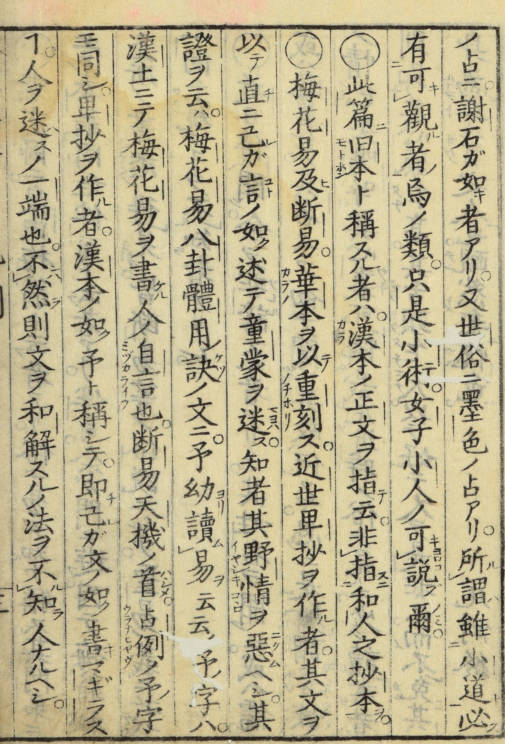 ノ占ニ謝石ガ如キ者アリ又世俗ニ墨色ノ占アリ所謂雖小道必
有可觀者焉ノ類只是小術女子小人ノ可説爾
〇此篇旧本ト稱スル者ハ漢本ノ正文ヲ指テ云非指和人之抄本
〇梅花易及断易華本ヲ以テ重刻ス近世卑抄ヲ作ル者其文ヲ
以テ直ニ己ガ言ノ如ク述テ童蒙ヲ迷ス知者其野情ヲ惡ヘシ其
證ヲ云ハ梅花易八卦體用訣ノ文ニ予幼讀易云云予ノ字ハ
漢土ニテ梅花易ヲ書ケル人ノ自言也断易天機ノ首占例ノ予字
モ同シ卑抄ヲ作ル者漢本ノ如ク予ト稱シテ即己ガ文ノ如ク書マギラス
ヿ人ヲ迷スノ一端也不然則文ヲ和解スルノ法ヲ不知人ナルヘシ